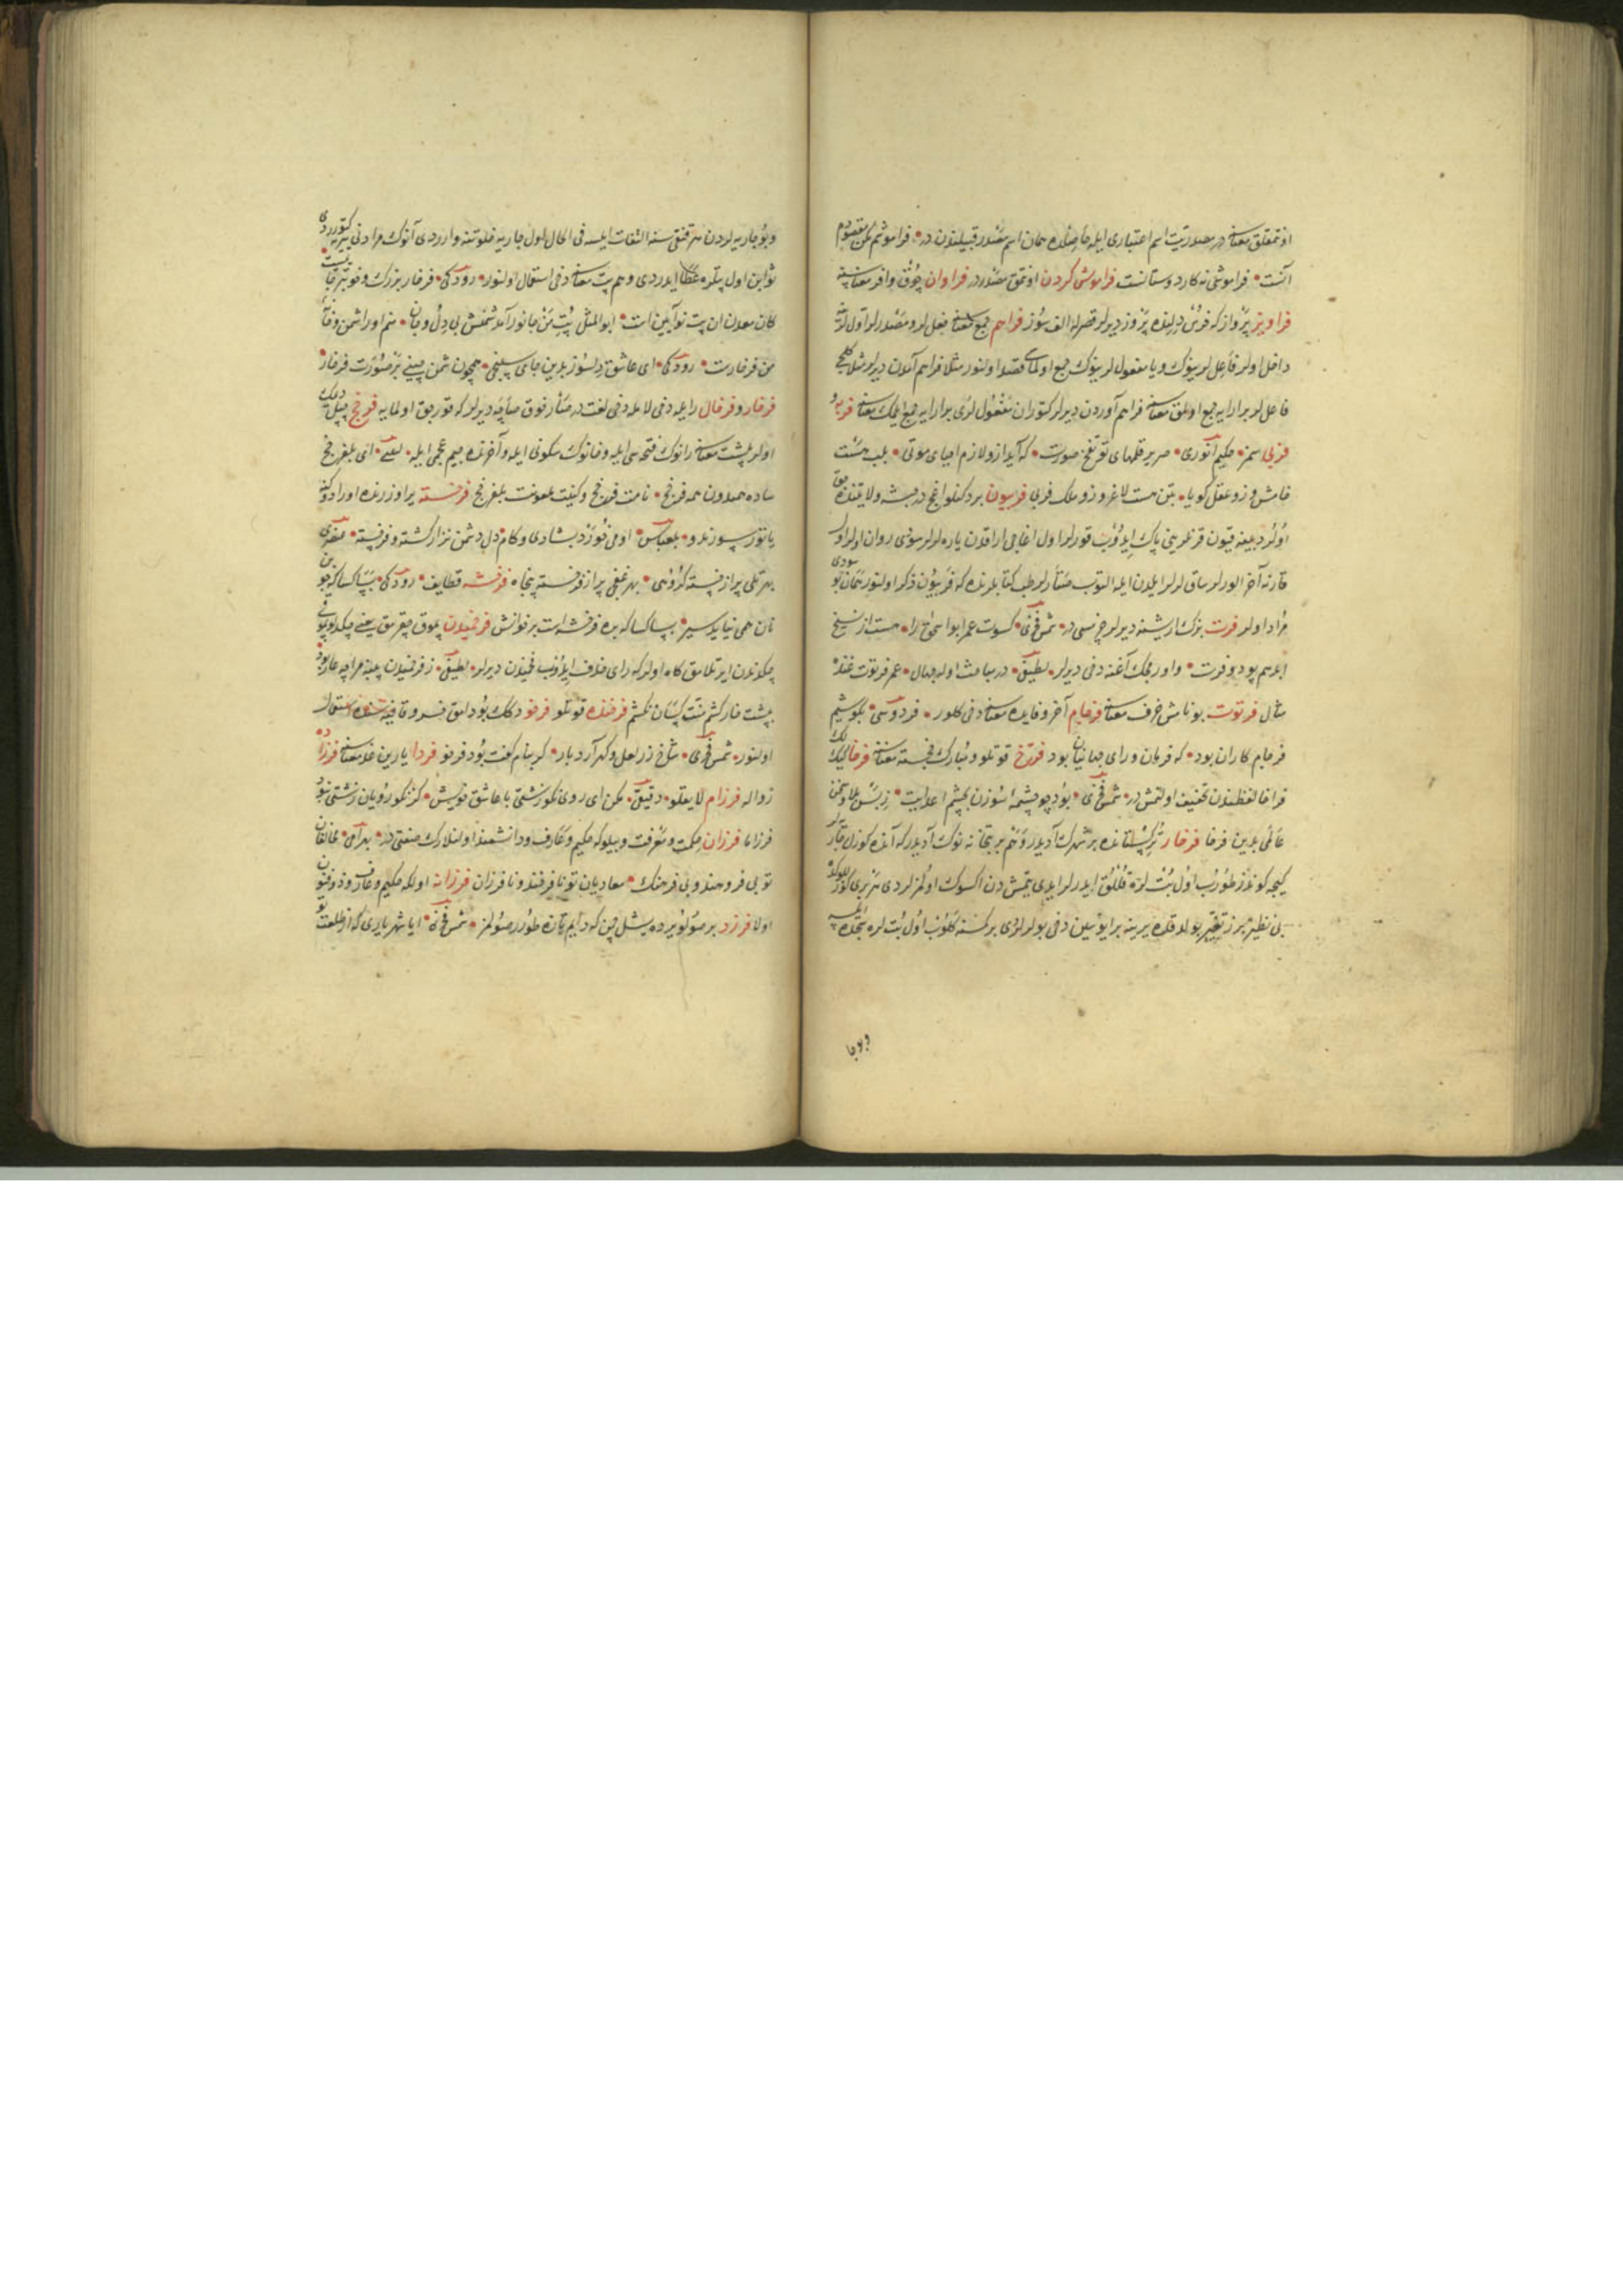 اونتمقلق معناسنه در مصدریت اسم اعتباری ایله حاصلنده همان اسم مصدر قبیلندن در فراموشم مکن مقصودم
آنست فراموشی نه کار دوستانست فراموش کردن اونتمق مصدر در فراوان چوق وافر معناسنه
فراویز پرواز که فرس دیلنده پروز دیرلر قصر له الف سوز فراهم جمع معناسنه فعل لر و مصدر لر اول لرینه
داخل اولر فاعل لرینوک و یا مفعول لرینوک جمع اولماسی قصد اولنور مثلا فراهم آمدن دیرلر
فاعل لر برارایه جمع اولمق معناسنه فراهم آوردن دیرلر کتوران مفعول لری برارایه جمع ایلمک معناسنه فربه و
فربی سمز حکیم انوری صریر قلمهای تو نفخ صورست که آید ازو لازم احیای موتی بلب هست
خامش و زو عقل کویا بتن هست لاغر و زو ملک فربی فربیون بر دکنلو اغجدر حبشه ولایتنده
اولر دیبنه قیون قرنلرینی پاک ایدوب قورلر اول اغاجی اراقدن یاره لرلر سودی روان اولر اول
قارنه آخر الورلر ساق لرلر ایلدن ایله التوب صتارلر طب کتابلرنده که فربیون ذکر اولنور همان بو سودی
مراد اولر فرت بزک ارشنه دیرلر خ نسی در شمس فخری کسوت عمر ابواسحق را هست از نسج
ابد هم پود و هم فرت و اورمجک آغنه دخی دیرلر لطیفی در مباحث اوله جهال عمر فرتوت غنده
مثال فرتوت بونامش خرف معناسنه فرجام آخر و فایده معناسنه دخی کلور فردوسی بکوشیم
فرجام کار ان بود که فرمان و رای جهانبان بود فرخ قوتلو و مبارک خجسته معناسنه فرخا
فراخا لفظندن تخفیف اولنمش در شمس فخری بود چو چشمه سوزن بچشم اعدایت
عالمی بدین فرخا فرخار ترکستانده بر شهرک آدیدر و هم بر بتخانه نوک آدیدر که آنده کوزل جاریه لر
کیجه کوندز طورب اول بت لره قللق ایدرلر ایدی یتمش دن اکسوک اولمزلردی هر بری کوزللوکده
بی نظیر هر زتغییر بولدقده یرینه بر ایوسین دخی بولرلردی بر کسنه کلوب اول بت لره سجده ایلسه
وبوجا
وبو جاریه لردن هر قنغی سنه التفات ایلسه فی الحال اول جاریه خلوتنه واردی آنوک مرادنی یرینه کتوردی
ثوابن اول بتلره عطا ایدردی و هم بت معناسنه دخی استعمال اولنور رودکی فرخار بزرک و خوبتر جاست
کان معدن ان بت نوآیین است ابو المثل بت من جانور آمد شمنش بی دل و جان منم او را شمن و خانه
من فرخارست رودکی ای عاشق دلسوز بدین جای سپنجی همچون شمن چینی بر صورت فرخار
فرخار و فرخال را یله دخی لا یله دخی لغت در صتار فوق صاچه دیرلر که قورجق اولمایه فرخج چپل دیمک
اولر پشت معناسنه رانوک فتحه سی ایله و خانوک سکونی ایله و آخرنده جیم عجمی ایله لعبی ای بلفرخج
ساده همیدون همه فرخج نامت فرخج و کنیت ملعونت بلفرخج فرخسته یر اوزرنده اورادوکنه
یاتور سورندو بلعباس او می خورد بشادی و کام دل دشمن نزار کشته و فرخسته منصری
بهر تلی پر از خسته کروهی بهر غفجی پر از فرخسته پنجاه فرخشه قطایف رودکی بسا کسا که جوین
نان همی نیابد سیر بسا کسا که بره و فرخشه است بر خوانش فرخمیدن پموق چقرمق یعنی چکلو پموغی
چکردکدن ایرتلامق کاه اولر که رای حذف ایدوب فخمیدن دیرلر لطیفی ز فرخمیدن پنبه مرا چه عار بود
بپشت خار کشم منت کسان نکشم فرخنده قوتلو فرخو دکلک بودامق خسرو قافیه سنده استعمال
اولنور شمس فخری شاخ زر لعل و کهر آرد بار کر بنام کفت بود فرخو فردا یارین غد معناسنه فرزد
زواله فرزام لایقلو دقیقی مکن ای روی نکو زشتی با عاشق خویش کز نکو رویان زشتی نبود
فرزاما فرزان حکمت و معرفت و بیلوکه حکیم و عارف و دانشمند اولنلارک صنعتی در بهرامی
تو بی فر و هند و بی فرهنک معادیان تو نافرخند و نافرزان فرزانه اولکه حکیم و عارف و ذوفنون
اولا فرزد بر صو لو یرده یشل چمن که دایم تازه طورر صولمز شمس فخری ایا شهریاری که از طلعت تو